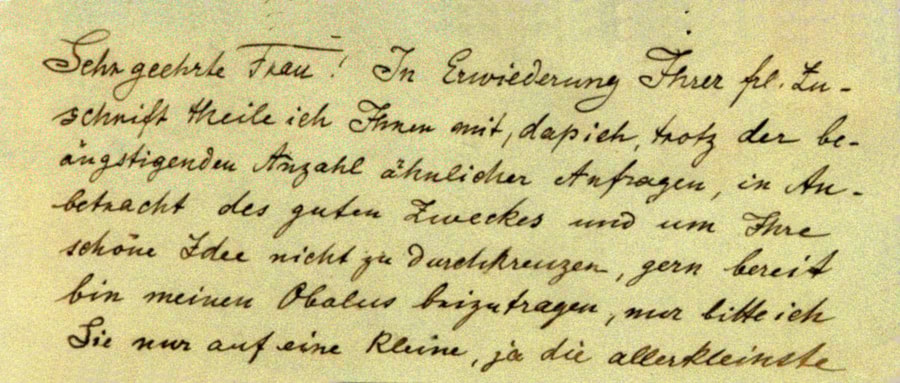 Sehr geehrte Frau! In Erwiederung Ihrer frl. Zu-
schrift theile ich Ihnen mit, daß ich, trotz der be-
ängstigenden Anzahl ähnlicher Anfragen, in An-
betracht des guten Zweckes und um Ihre
schöne Idee nicht zu durchkreuzen, gern bereit
bin meinen Obolus beizutragen, nur bitte ich
Sie nur auf eine kleine, ja die allerkleinste